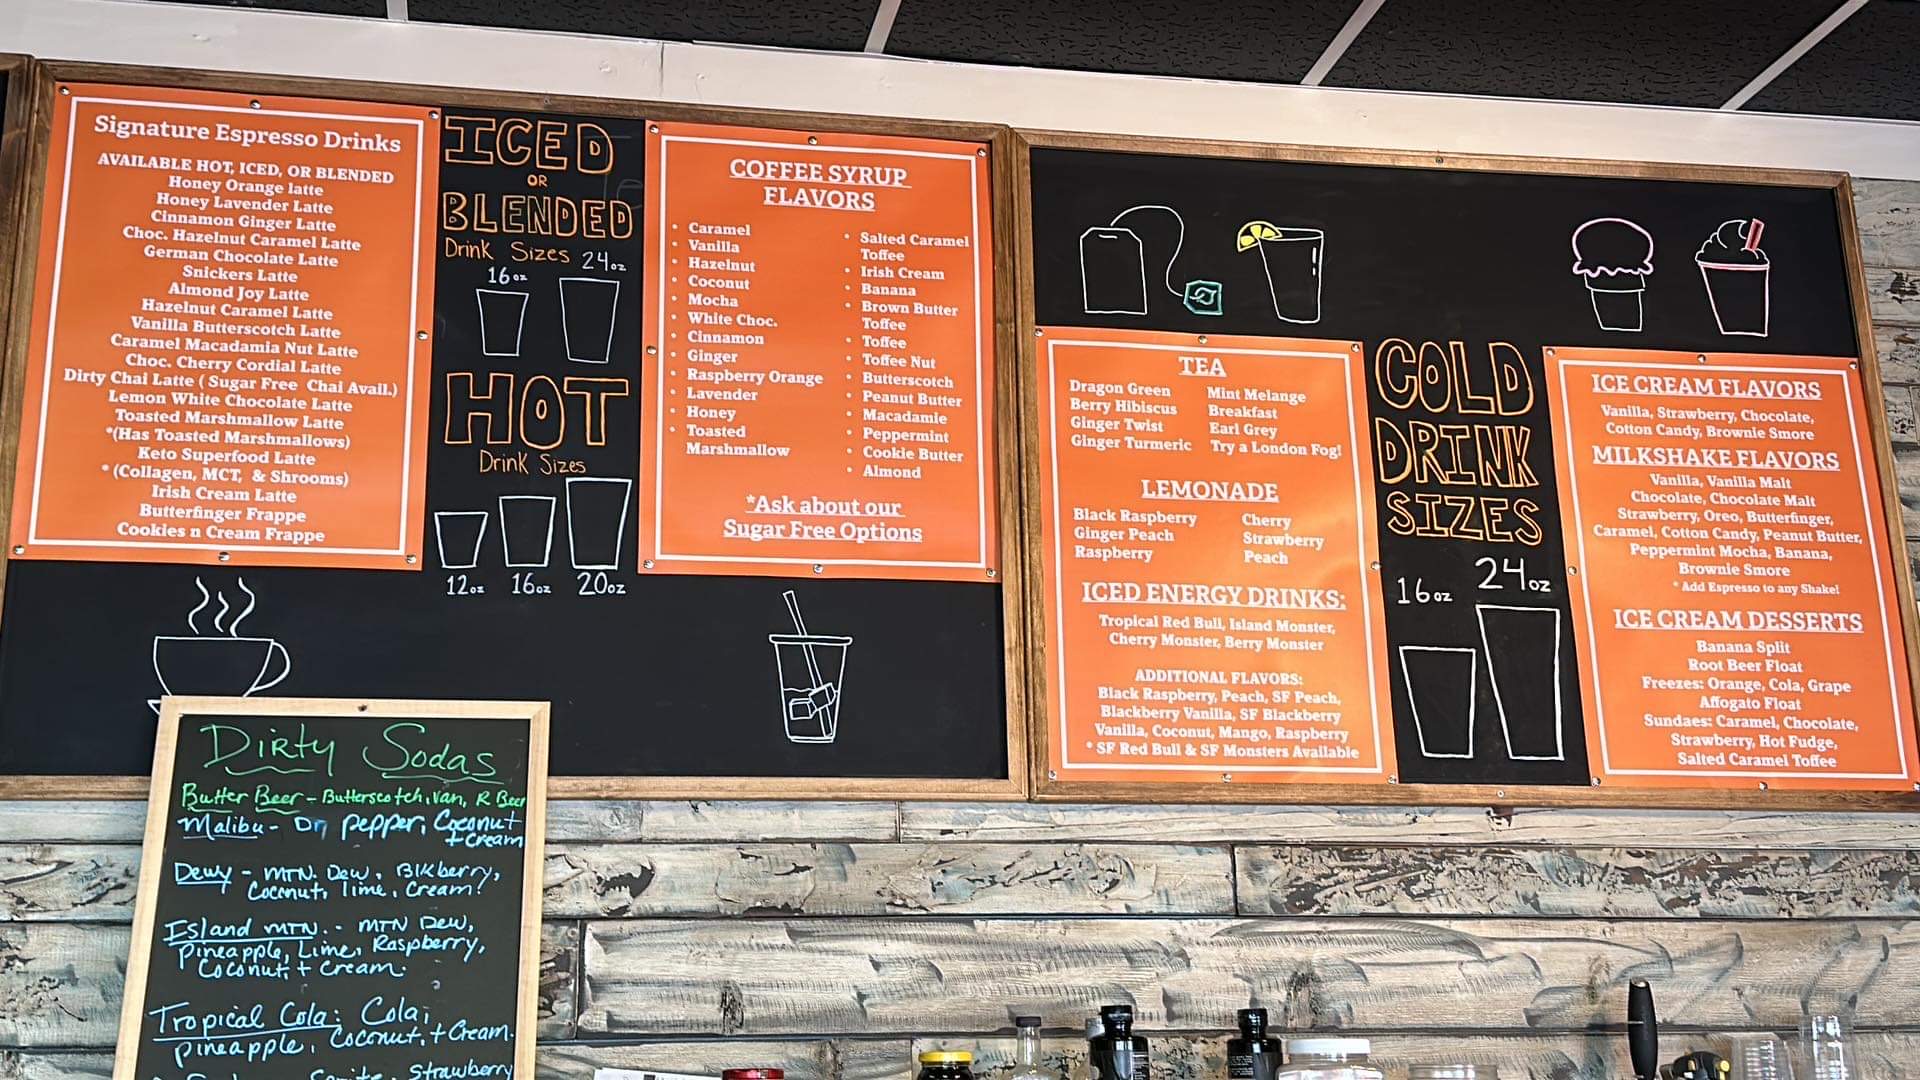 Signature Espresso Drinks
AVAILABLE HOT, ICED, OR BLENDED
Honey Orange latte
Honey Lavender Latte
Cinnamon Ginger Latte
Choc. Hazelnut Caramel Latte
German Chocolate Latte
Snickers Latte
Almond Joy Latte
Hazelnut Caramel Latte
Vanilla Butterscotch Latte
Caramel Macadamia Nut Latte
Choc. Cherry Cordial Latte
Dirty Chai Latte ( Sugar Free Chai Avail.)
Lemon White Chocolate Latte
Toasted Marshmallow Latte
*(Has Toasted Marshmallows)
Keto Superfood Latte
* (Collagen, MCT, & Shrooms)
Irish Cream Latte
Butterfinger Frappe
Cookies n Cream Frappe
ICED
OR
BLENDED
Drink Sizes
16oz 24oz
HOT
Drink Sizes
12oz 16oz 20oz
COFFEE SYRUP
FLAVORS
• Caramel
• Vanilla
• Hazelnut
• Coconut
• Mocha
• White Choc.
• Cinnamon
• Ginger
• Raspberry Orange
• Lavender
• Honey
• Toasted
Marshmallow
• Salted Caramel
Toffee
• Irish Cream
• Banana
• Brown Butter
Toffee
• Toffee
• Toffee Nut
• Butterscotch
• Peanut Butter
• Macadamie
• Peppermint
• Cookie Butter
• Almond
*Ask about our
Sugar Free Options
TEA
Dragon Green
Berry Hibiscus
Ginger Twist
Ginger Turmeric
Mint Melange
Breakfast
Earl Grey
Try a London Fog!
LEMONADE
Black Raspberry
Ginger Peach
Raspberry
Cherry
Strawberry
Peach
ICED ENERGY DRINKS:
Tropical Red Bull, Island Monster,
Cherry Monster, Berry Monster
ADDITIONAL FLAVORS:
Black Raspberry, Peach, SF Peach,
Blackberry Vanilla, SF Blackberry
Vanilla, Coconut, Mango, Raspberry
* SF Red Bull & SF Monsters Available
COLD
DRINK
SIZES
16oz 24oz
ICE CREAM FLAVORS
Vanilla, Strawberry, Chocolate,
Cotton Candy, Brownie Smore
MILKSHAKE FLAVORS
Vanilla, Vanilla Malt
Chocolate, Chocolate Malt
Strawberry, Oreo, Butterfinger,
Caramel, Cotton Candy, Peanut Butter,
Peppermint Mocha, Banana,
Brownie Smore
* Add Espresso to any Shake!
ICE CREAM DESSERTS
Banana Split
Root Beer Float
Freezes: Orange, Cola, Grape
Affogato Float
Sundaes: Caramel, Chocolate,
Strawberry, Hot Fudge,
Salted Caramel Toffee
Dirty Sodas
Butter Beer - Butterscotch, van, R Beer
Malibu - Dr pepper, Coconut
+ Cream
Dewy - MTN. Dew, Blkberry,
Coconut, lime, Cream!
Island MTN. - MTN Dew,
pineapple, Lime, Raspberry,
Coconut, + Cream.
Tropical Cola: Cola,
pineapple, Coconut, + Cream.
Strawberry